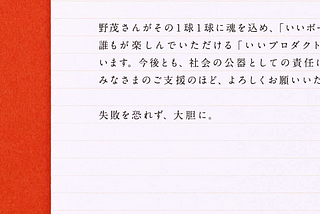 野茂さんがその1球1球に魂を込め、「いいボー
誰もが楽しんでいただける「いいプロダクト
います。今後とも、社会の公器としての責任
みなさまのご支援のほど、よろしくお願いいた
失敗を恐れず、大胆に。